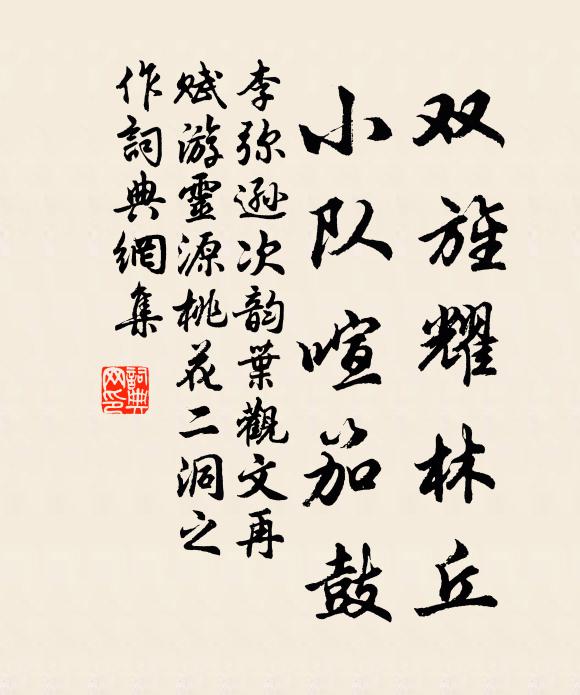 双旌耀林丘
小队喧笳鼓
李弥逊次韵葉觀文再
赋游靈源桃花二洞之
作詞典網集
詞典網印